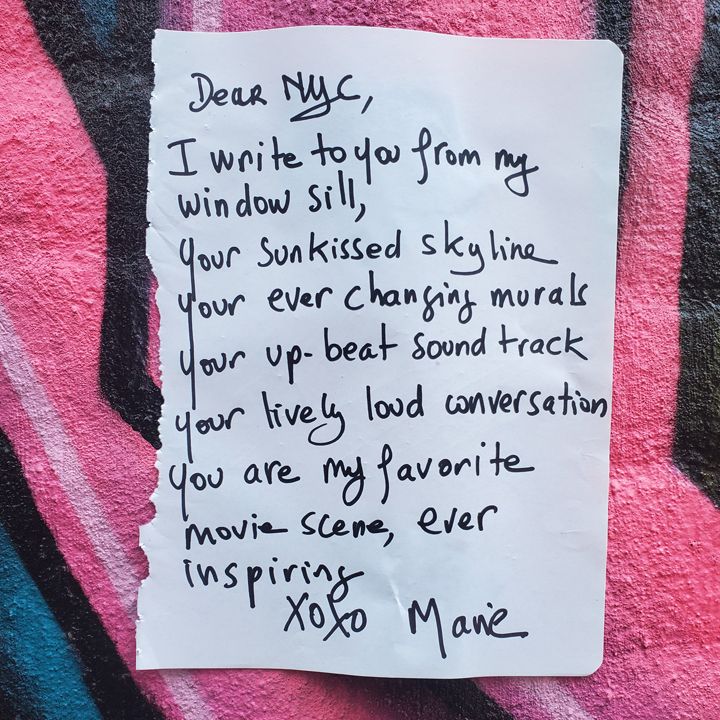 Dear NYC,
I write to you from my
window sill,
your sunkissed skyline
your ever changing murals
your up-beat sound track
your lively loud conversation
you are my favorite
movie scene, ever
inspiring
XOXO Marie